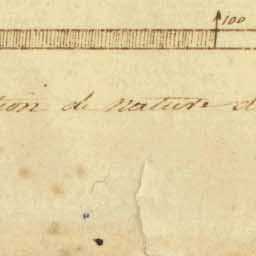 100
tion de nature d